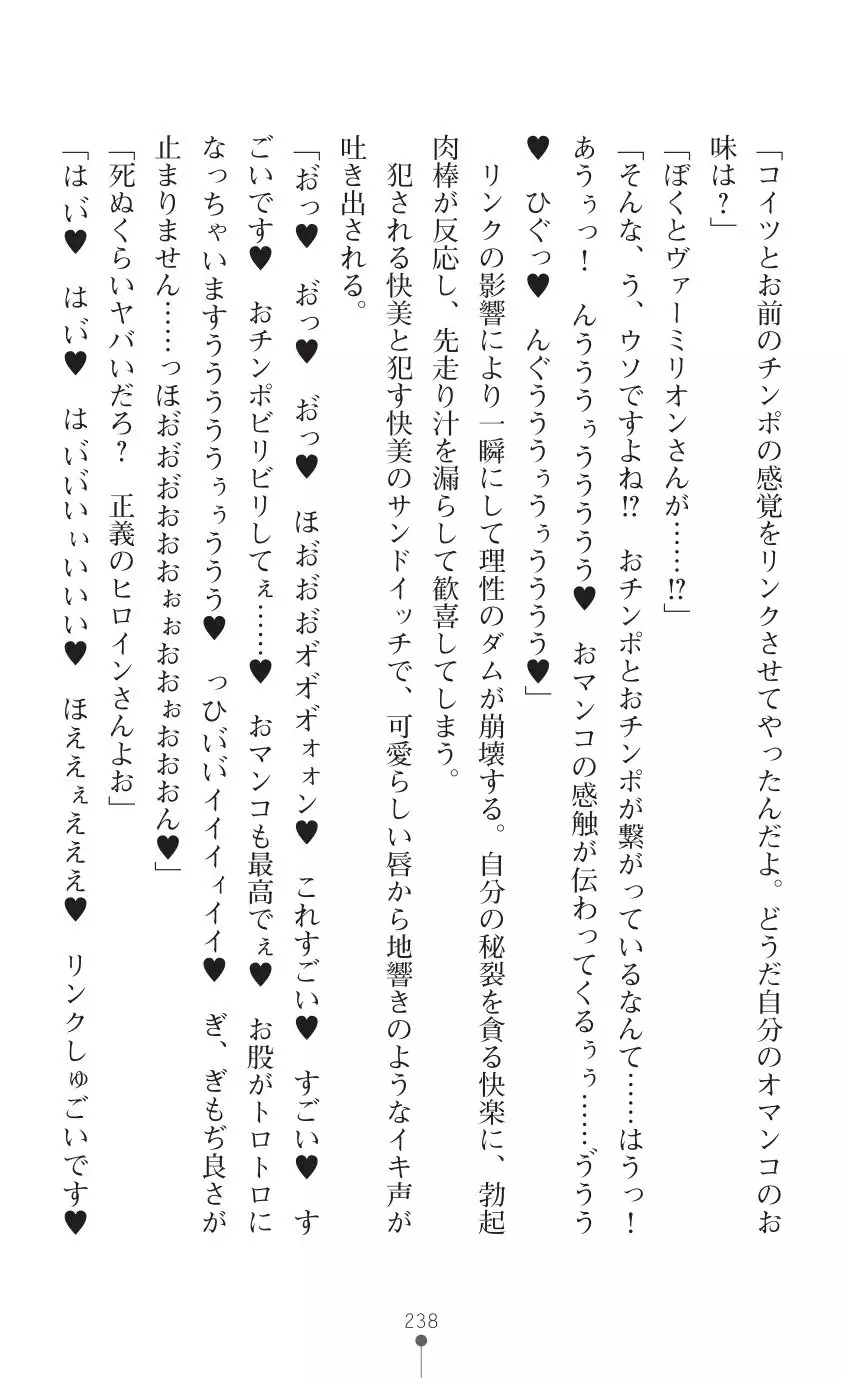 「コイツとお前のチンポの感覚をリンクさせてやったんだよ。どうだ自分のオマンコのお
味は？」
「ぼくとヴァーミリオンさんが……!?」
「そんな、う、ウソですよね!?　おチンポとおチンポが繋がっているなんて……はうっ！
あうぅっ！　んうううぅううううう♥　おマンコの感触が伝わってくるぅぅ……ゔうう
♥　ひぐっ♥　んぐうううぅうぅうううう♥」
　リンクの影響により一瞬にして理性のダムが崩壊する。自分の秘裂を貪る快楽に、勃起
肉棒が反応し、先走り汁を漏らして歓喜してしまう。
　犯される快美と犯す快美のサンドイッチで、可愛らしい唇から地響きのようなイキ声が
吐き出される。
「お゙っ♥　お゙っ♥　お゙っ♥　ほお゙お゙お゙オ゙オ゙オ゙ォォン♥　これすごい♥　すごい♥　す
ごいです♥　おチンポビリビリしてぇ……♥　おマンコも最高でぇ♥　お股がトロトロに
なっちゃいますうううううぅぅううう♥　っひい゙い゙イイイィイイ♥　ぎ、ぎもぢ良さが
止まりません……っほお゙お゙お゙おおおぉぉおおぉおおおん♥」
「死ぬくらいヤバいだろ？　正義のヒロインさんよお」
「はい゙♥　はい゙♥　はい゙い゙いぃいいい♥　ほええぇえええ♥　リンクしゅごいです♥
238